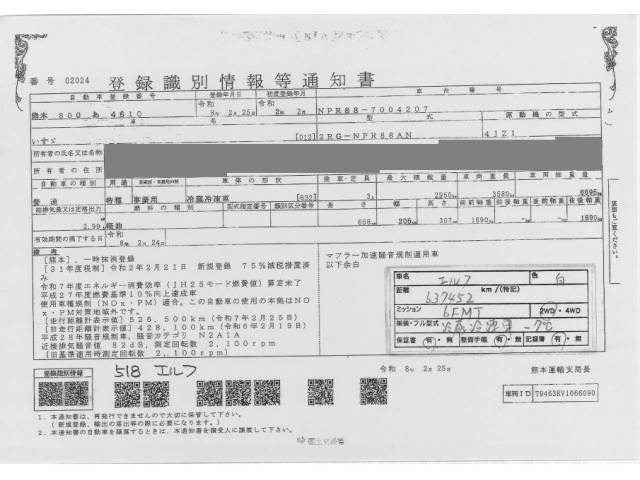 番号 02024 登録識別情報等通知書
自動車登録番号 登録年月日 初度登録年月 車台番号
熊本 800 あ 4610 令和 8年 2月 25日 令和 2年 2月 NPR88-7004207
車名 型式 原動機の型式
いすゞ [012] 2RG-NPR88AN 4JZ1
所有者の氏名又は名称
所有者の住所
自動車の種別 用途 自家用・事業用の別 車体の形状 乗車定員 最大積載量 車両重量 車両総重量
普通 特種 事業用 冷蔵冷凍車 [632] 3人 2950kg 3580kg 6695kg
総排気量又は定格出力 燃料の種類 型式指定番号 類別区分番号 長さ 幅 高さ 前前軸重 前後軸重 後前軸重 後後軸重
2.99 軽油 658 206 307 1890kg 1690kg
有効期間の満了する日 令和 8年 2月 24日
備考
[熊本],一時抹消登録
[31年度税制]令和2年2月21日 新規登録 75%減税措置済み
令和7年度エネルギー消費効率(JH25モード燃費値)算定未了
平成27年度燃費基準10%向上達成車
使用車種規制(NOx・PM)適合。この自動車の使用の本拠はNOx・PM対策地域外です。
[走行距離計表示値]526,500km(令和7年2月25日)
[旧走行距離計表示値]428,100km(令和6年2月19日)
平成28年騒音規制車、騒音カテゴリ N2A1A
近接排気騒音値 82dB,測定回転数 2,100rpm
(旧基準適用時測定回転数 2,100rpm)
マフラー加速騒音規制適用車
以下余白
車名 エルフ 色 白
距離 637452 km/(特記)
ミッション 6FMT 2WD・4WD
架装・フル型式 冷蔵冷凍車 -7℃
保証書 有・無 整備手帳 有・無 記録簿 有・無
裏面もご覧ください。
登録識別情報 518 エルフ
令和 8年 2月 25日 熊本運輸支局長
車両ID T9463RV1066090
1.本通知書は、再発行できませんので大切に保管して下さい。
(新規登録、輸出の届出等の際に必要になります。)
2.本通知書の自動車を譲渡するときは、本通知書を譲受人に譲渡して下さい。
国土交通省